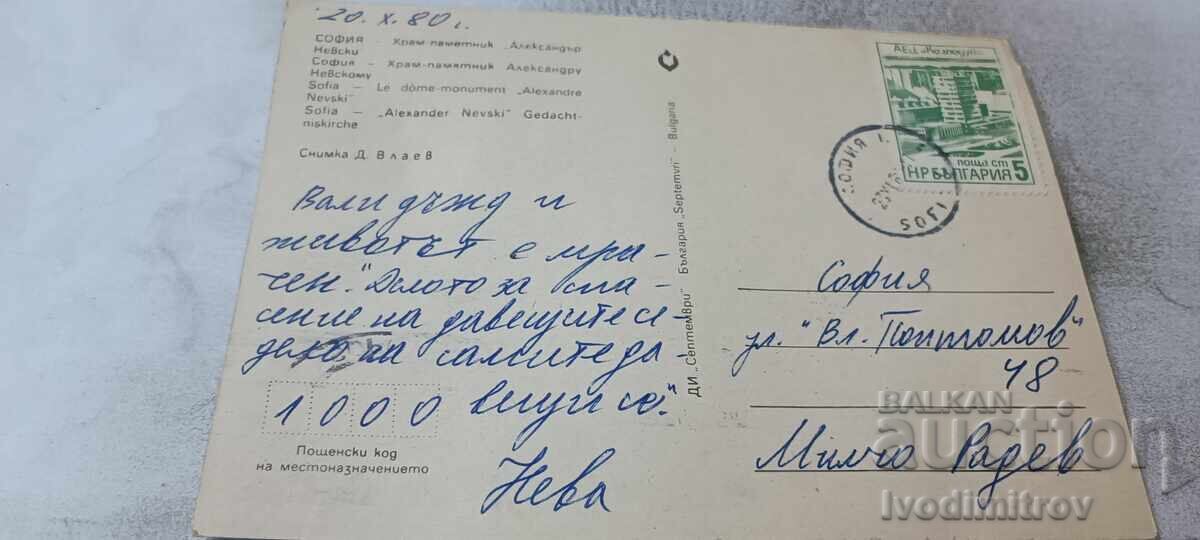 20. X. 80 г.
СОФИЯ – Храм-паметник „Александър
Невски
София – Храм-памятник Александру
Невскому
Sofia – Le dôme-monument „Alexandre
Nevski"
Sofia – „Alexander Nevski" Gedächt-
niskirche
Снимка Д. Влаев
Вали дъжд и
животът е мра-
чен. "Делото за спа-
сение на давещите се
дело на самите да-
вещи се."
Нева
1000
Пощенски код
на местоназначението
ДИ „Септември" България „Septemvri" – Bulgaria
АЕЦ „Козлодуй"
поща ст 5
НР БЪЛГАРИЯ
СОФИЯ
София
ул. "Вл. Поптомов"
48
Милчо Радев
BALKAN
auction
Ivodimitrov